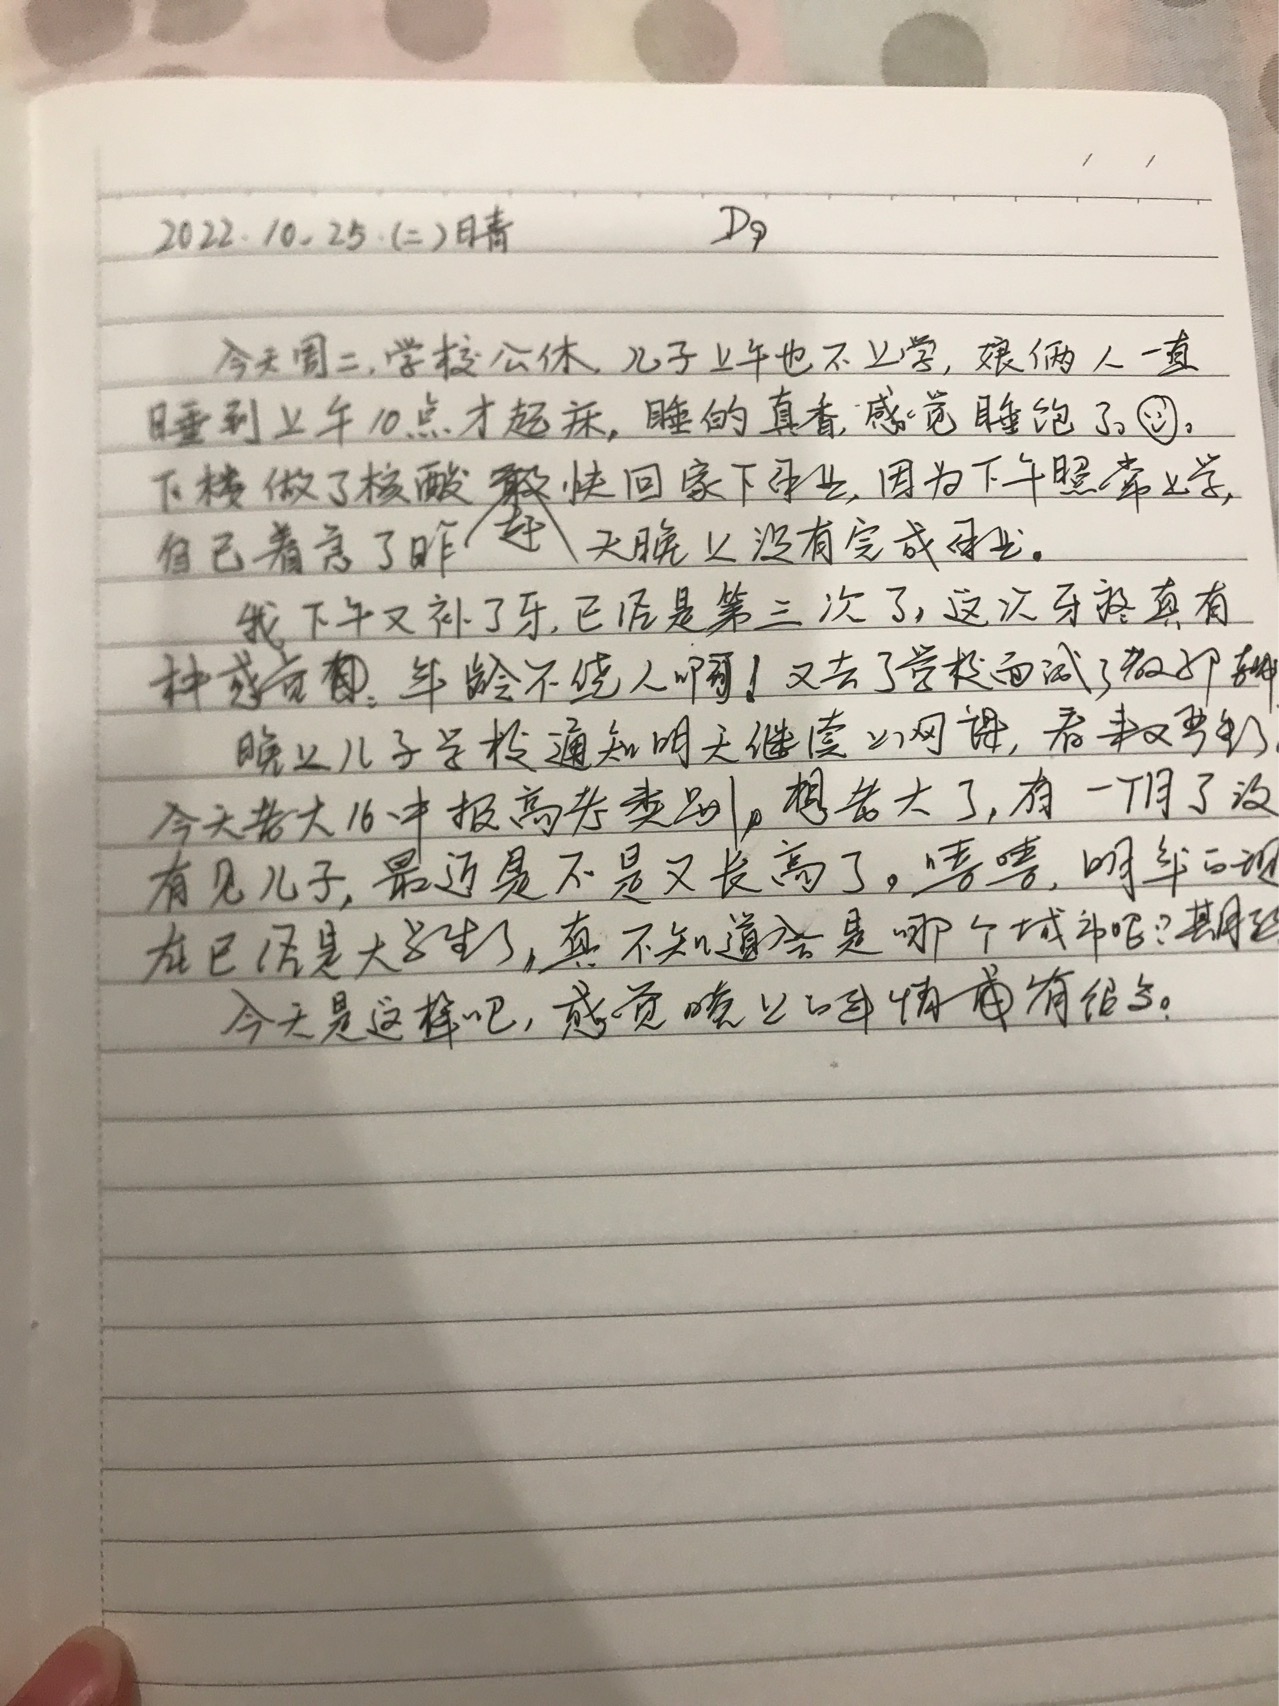 2022.10.25.(二)晴 D9
今天周二,学校公休,儿子上午也不上学,娘俩人一直
睡到上午10点才起床,睡的真香,感觉睡饱了。☺。
下楼做了核酸赶快回家下作业,因为下午照常上学,
自己着急了昨天晚上没有完成作业。
我下午又补了牙,已经是第三次了,这次牙疼真有
种感觉,年龄不饶人啊!又去了学校面试了教
晚上儿子学校通知明天继续上网课,看来又要
今天老大16中报高考类别,想老大了,有一个月了没
有见儿子,最近是不是又长高了。嘻嘻,明年的现
在已经是大学生了,真不知道会是哪个城市呢?期
今天是这样吧,感觉晚上的事情有很多。